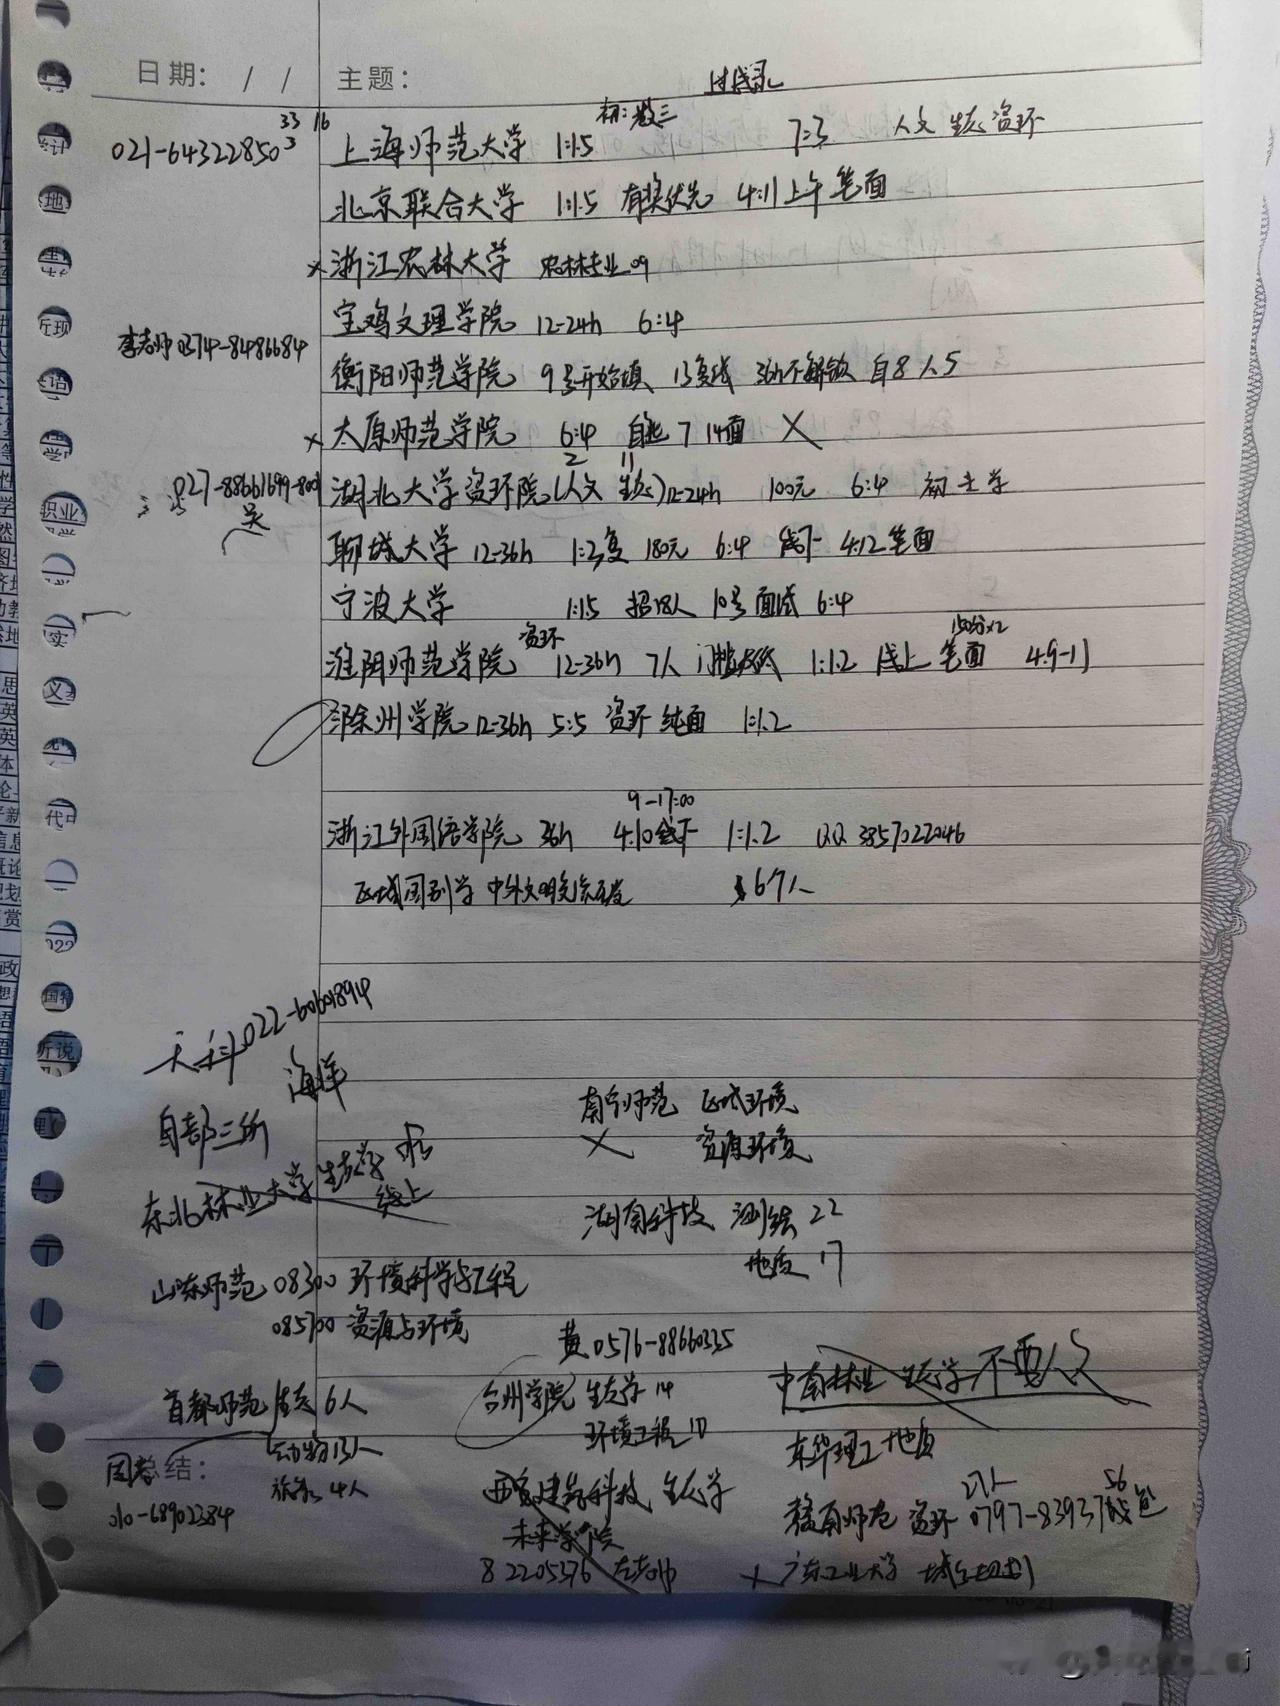 日期： / / 主题：
过线录
初：数三
33 16
021-64322850 3 上海师范大学 1:1.5 7:3 人文 生态 资环
北京联合大学 1:1.5 有奖优先 4.11上午 笔面
×浙江农林大学 农林专业09
宝鸡文理学院 12-24h 6:4
李老师0374-8486684
衡阳师范学院 9号开始填 13复线 36h不解锁 自8人5
×太原师范学院 6:4 自然 7 14面 ×
2 11
027-88661699-800 湖北大学资环院(人文 生态)12-24h 100元 6:4
吴
聊城大学 12-36h 1:2复 180元 6:4 线下 4.12笔面
宁波大学 1:1.5 招18人 10号面试 6:4
资环 150分×2
淮阴师范学院 12-36h 7人 1:1.2 线上 笔面 4.9-11
滁州学院 12-36h 5:5 资环 纯面 1:1.2
9-17:00
浙江外国语学院 36h 4.10线下 1:1.2 QQ 3857022046
区域国别学 中外文明 67人
天科022-60601894
海洋
自部三所
东北林业大学 生态学
线上
南宁师范 区域环境
× 资源环境
湖南科技 测绘 22
地质 17
山东师范 08300 环境科学与工程
085700 资源与环境
黄0576-88660335
首都师范 生态6人
动物13人
旅 4人
台州学院 生态学14
环境工程10
中南林业 生态学 不要人
东华理工 地质
总结：
周老
010-68902384
西安建筑科技 生态学
未来学院
8 2205376
27人 56
赣南师范 资环 0797-83937
×广东工业大学 城乡规划